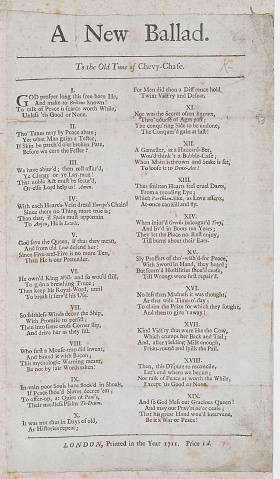 A New Ballad.
To the Old Tune of Chevy-Chase.
I.
GOD prosper long this free-born Isle,
And make to
known!
To talk of Peace is scarce worth While,
Unless 'tis Good or None.
II.
The Taxes may by Peace abate;
Yet what Man gains a Tester,
If Skin be patch'd o'er broken Pate,
Before we cure the Fester?
III.
We have
; then rest assur'd,
Ye Clergy or ye Lay-men!
That noble Act must be secur'd,
Or else Lord help us! Amen.
IV.
With each Heart's-Vein dread George's Chair
Since there no Thing more true is;
Than that, if Spain must appertain
To Anjou, He is Lewis.
V.
God save the Queen, if that they mean,
And form
Law defend her!
Since Five-and-Five is no more Ten,
Than He is our Pretender.
VI.
He own'd King Will- and so wou'd still,
To gain a breathing Truce;
Then keep his Royal-Word, until
To break it serv'd his Use.
VII.
So faithless Winds decoy the Ship,
With Promise to persist;
Then into some crash Corner slip,
And drive her as they list.
VIII.
Who first a Mouse-trap did invent,
And baited it with Bacon;
This mythologick Warning meant,
Be not by fair Words taken!
IX.
In vain poor Souls have flock'd in Shoals,
If Peace thou'd Slaves decree 'em;
To offer-up, at Quire of Paul's,
Their needless Psalm Te-Deum.
X.
It was not that in Days of old,
As Histories report;
For Men did then a Diff'rence hold
'Twixt Vict'ry and Defeat.
XI.
Nor was the Secret often known,
Thro' Course of Ages past;
The conqu'ring Side to be undone,
The Conquer'd gain at last!
XII.
A Gamester, at a Hazard-Box,
Wou'd think 't a Bubble-Case;
When Main is thrown and Stake is set,
To lose it to Deux-Ace!
XIII.
Thus smitten Hearts feel cruel Darts,
From a receding Eye;
Which Parthian-like, as Love asserts,
At-once can kill and fly.
XIV.
When injur'd Greeks beleaguer'd Troy,
And liv'd in Boots ten Years;
They let the Place no Rest enjoy,
Till burnt about their Ears.
XV.
Sly Proffers tho' with-drew for Peace,
With Sword in Hand, they heard;
But scorn'd Hostilities shou'd cease,
Till Wrongs were first repair'd.
XVI.
No less than Madness it was thought,
At that wise Time o' day;
To claim the Prize for which they fought,
And then to give 't away!
XVII.
Kind Vict'ry thus were like the Cow,
Which cramps her Back and Tail;
And, after yielding Milk enough,
Frisks-round and spills the Pail.
XVIII.
Then, this Dispute to reconcile,
Let's end where we begun;
Nor talk of Peace as worth the While,
Except 'tis Good or None.
XIX.
And so God bless our Gracious Queen!
And may our Pray'rs ne'er cease;
That his great Hand wou'd intervene,
Be it a War or Peace!
LONDON, Printed in the Year 1711. Price 1d.